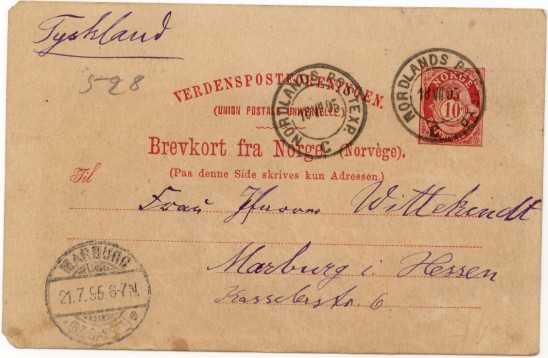 Tyskland
528
VERDENSPOSTFORENINGEN.
(UNION POSTALE UNIVERSELLE.)
NORDLANDS POSTEXP.
18 VII 95
C
NORDLANDS
18 VII 95
NORGE
10
Brevkort fra Norge. (Norvège).
(Paa denne Side skrives kun Adressen.)
Til
Frau Pfarrer Wittekindt
Marburg i Hessen
Kasselerstr. 6.
MARBURG
21.7.95. 6-7 N.